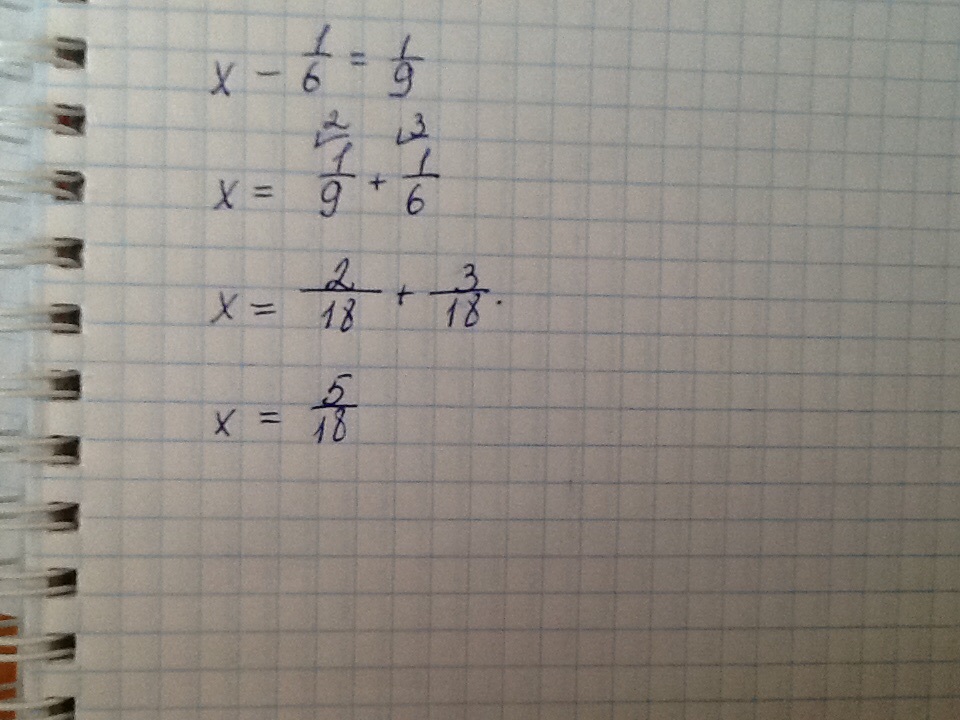 x - 1/6 = 1/9
2 3
x = 1/9 + 1/6
x = 2/18 + 3/18.
x = 5/18